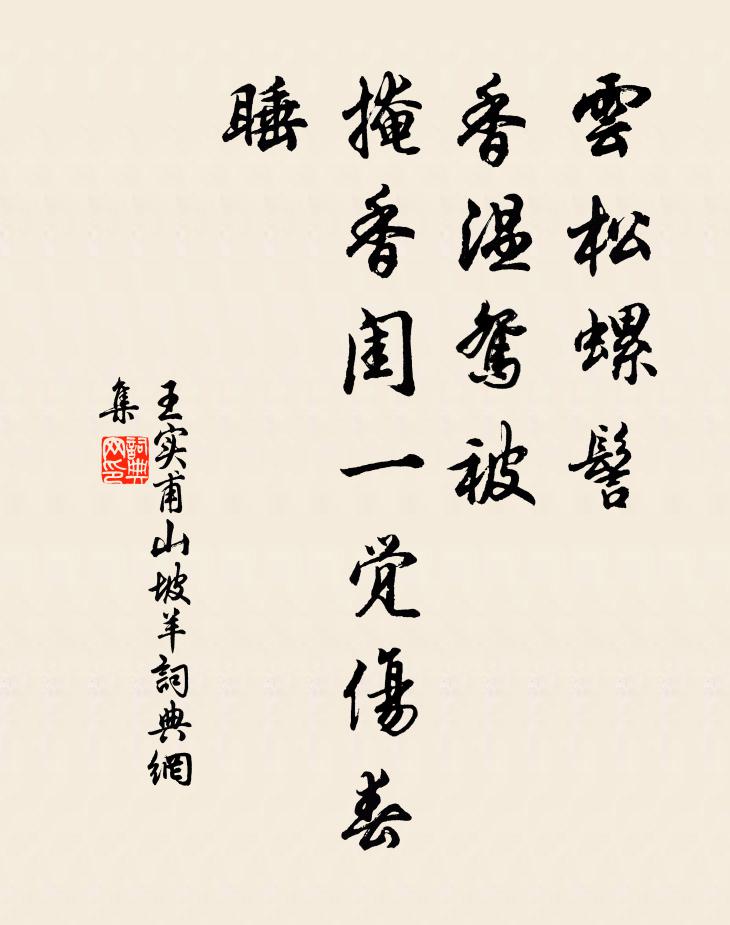 雲松螺髻
香温鴛被
掩香闺一觉傷春
睡
王实甫山坡羊詞典網
集
詞典
网印